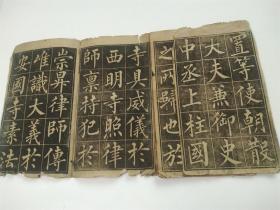 置等使朝散
大夫兼御史
中丞上柱國
之所歸也於
寺具威儀於
西明寺照律
師稟持犯於
崇昇律師傳
唯識大義於
安國寺素法